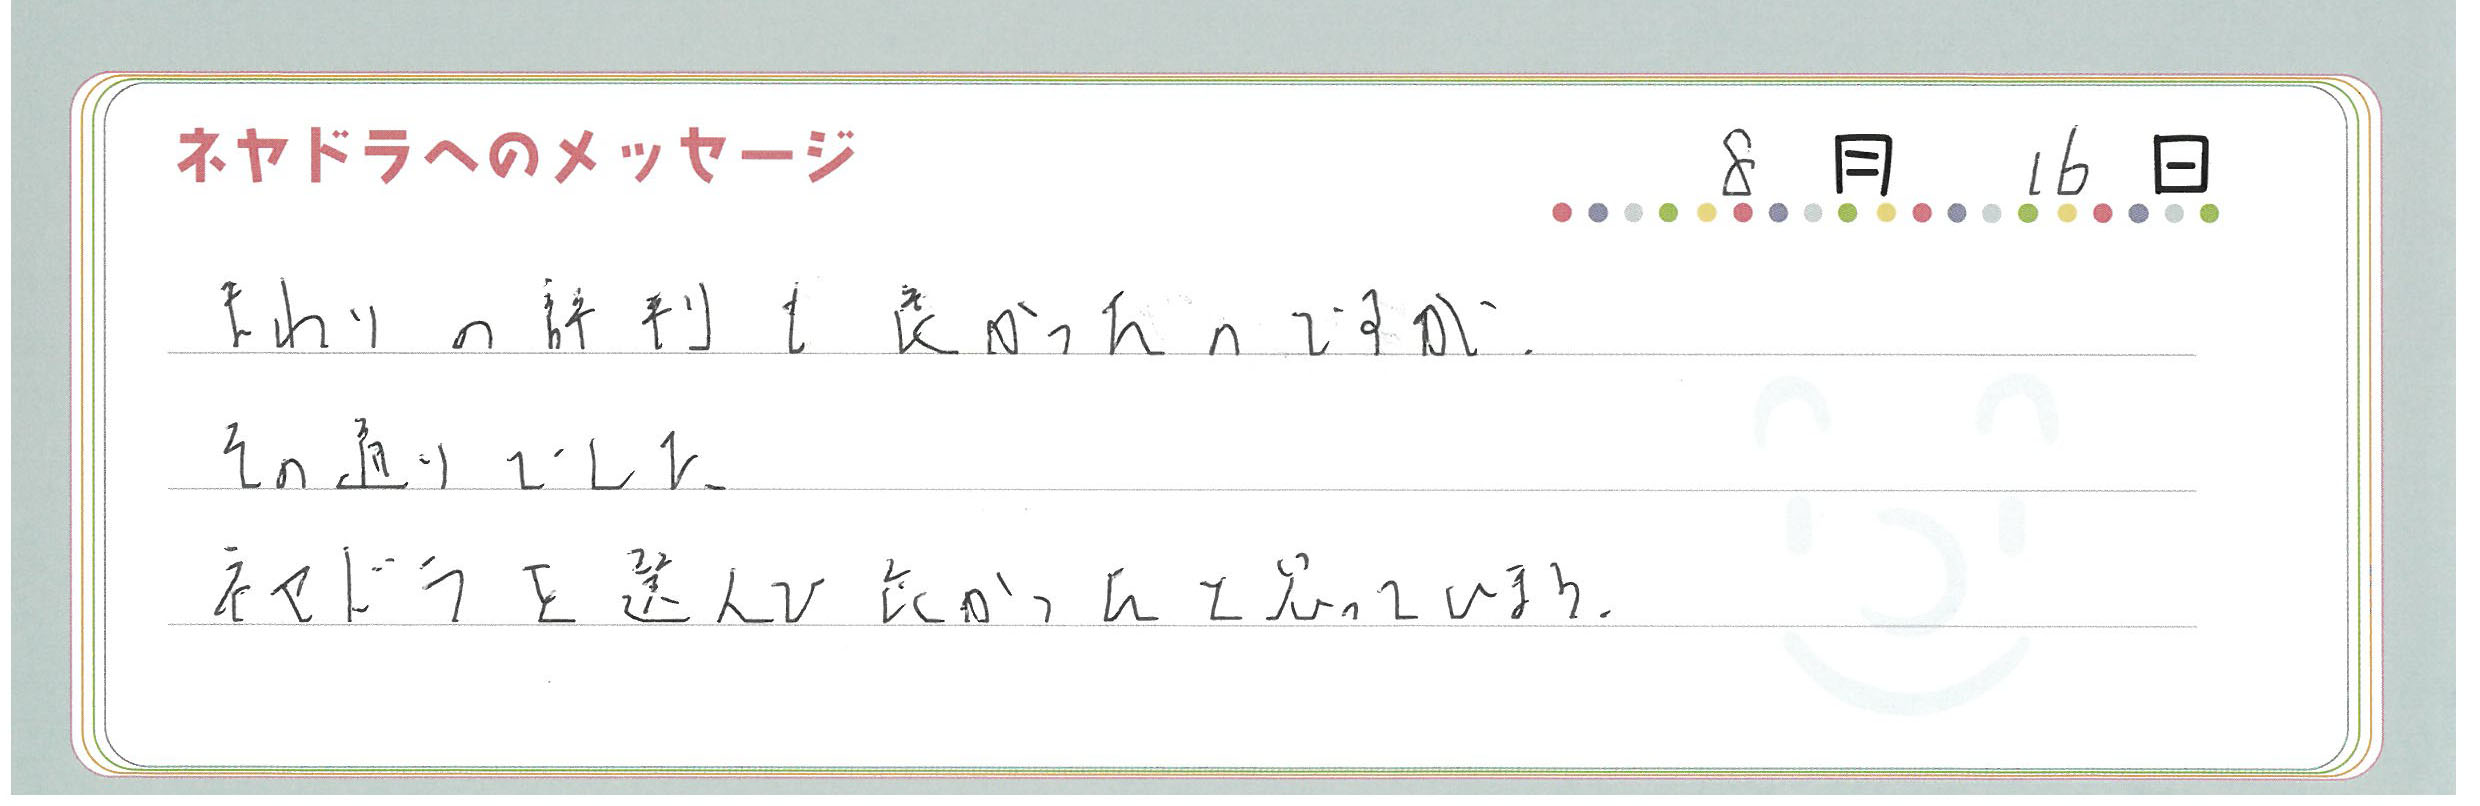 ネヤドラへのメッセージ
8月 16日
まわりの評判も良かったのですが.
その通りでした
ネヤドラを選んで良かったと思っています.